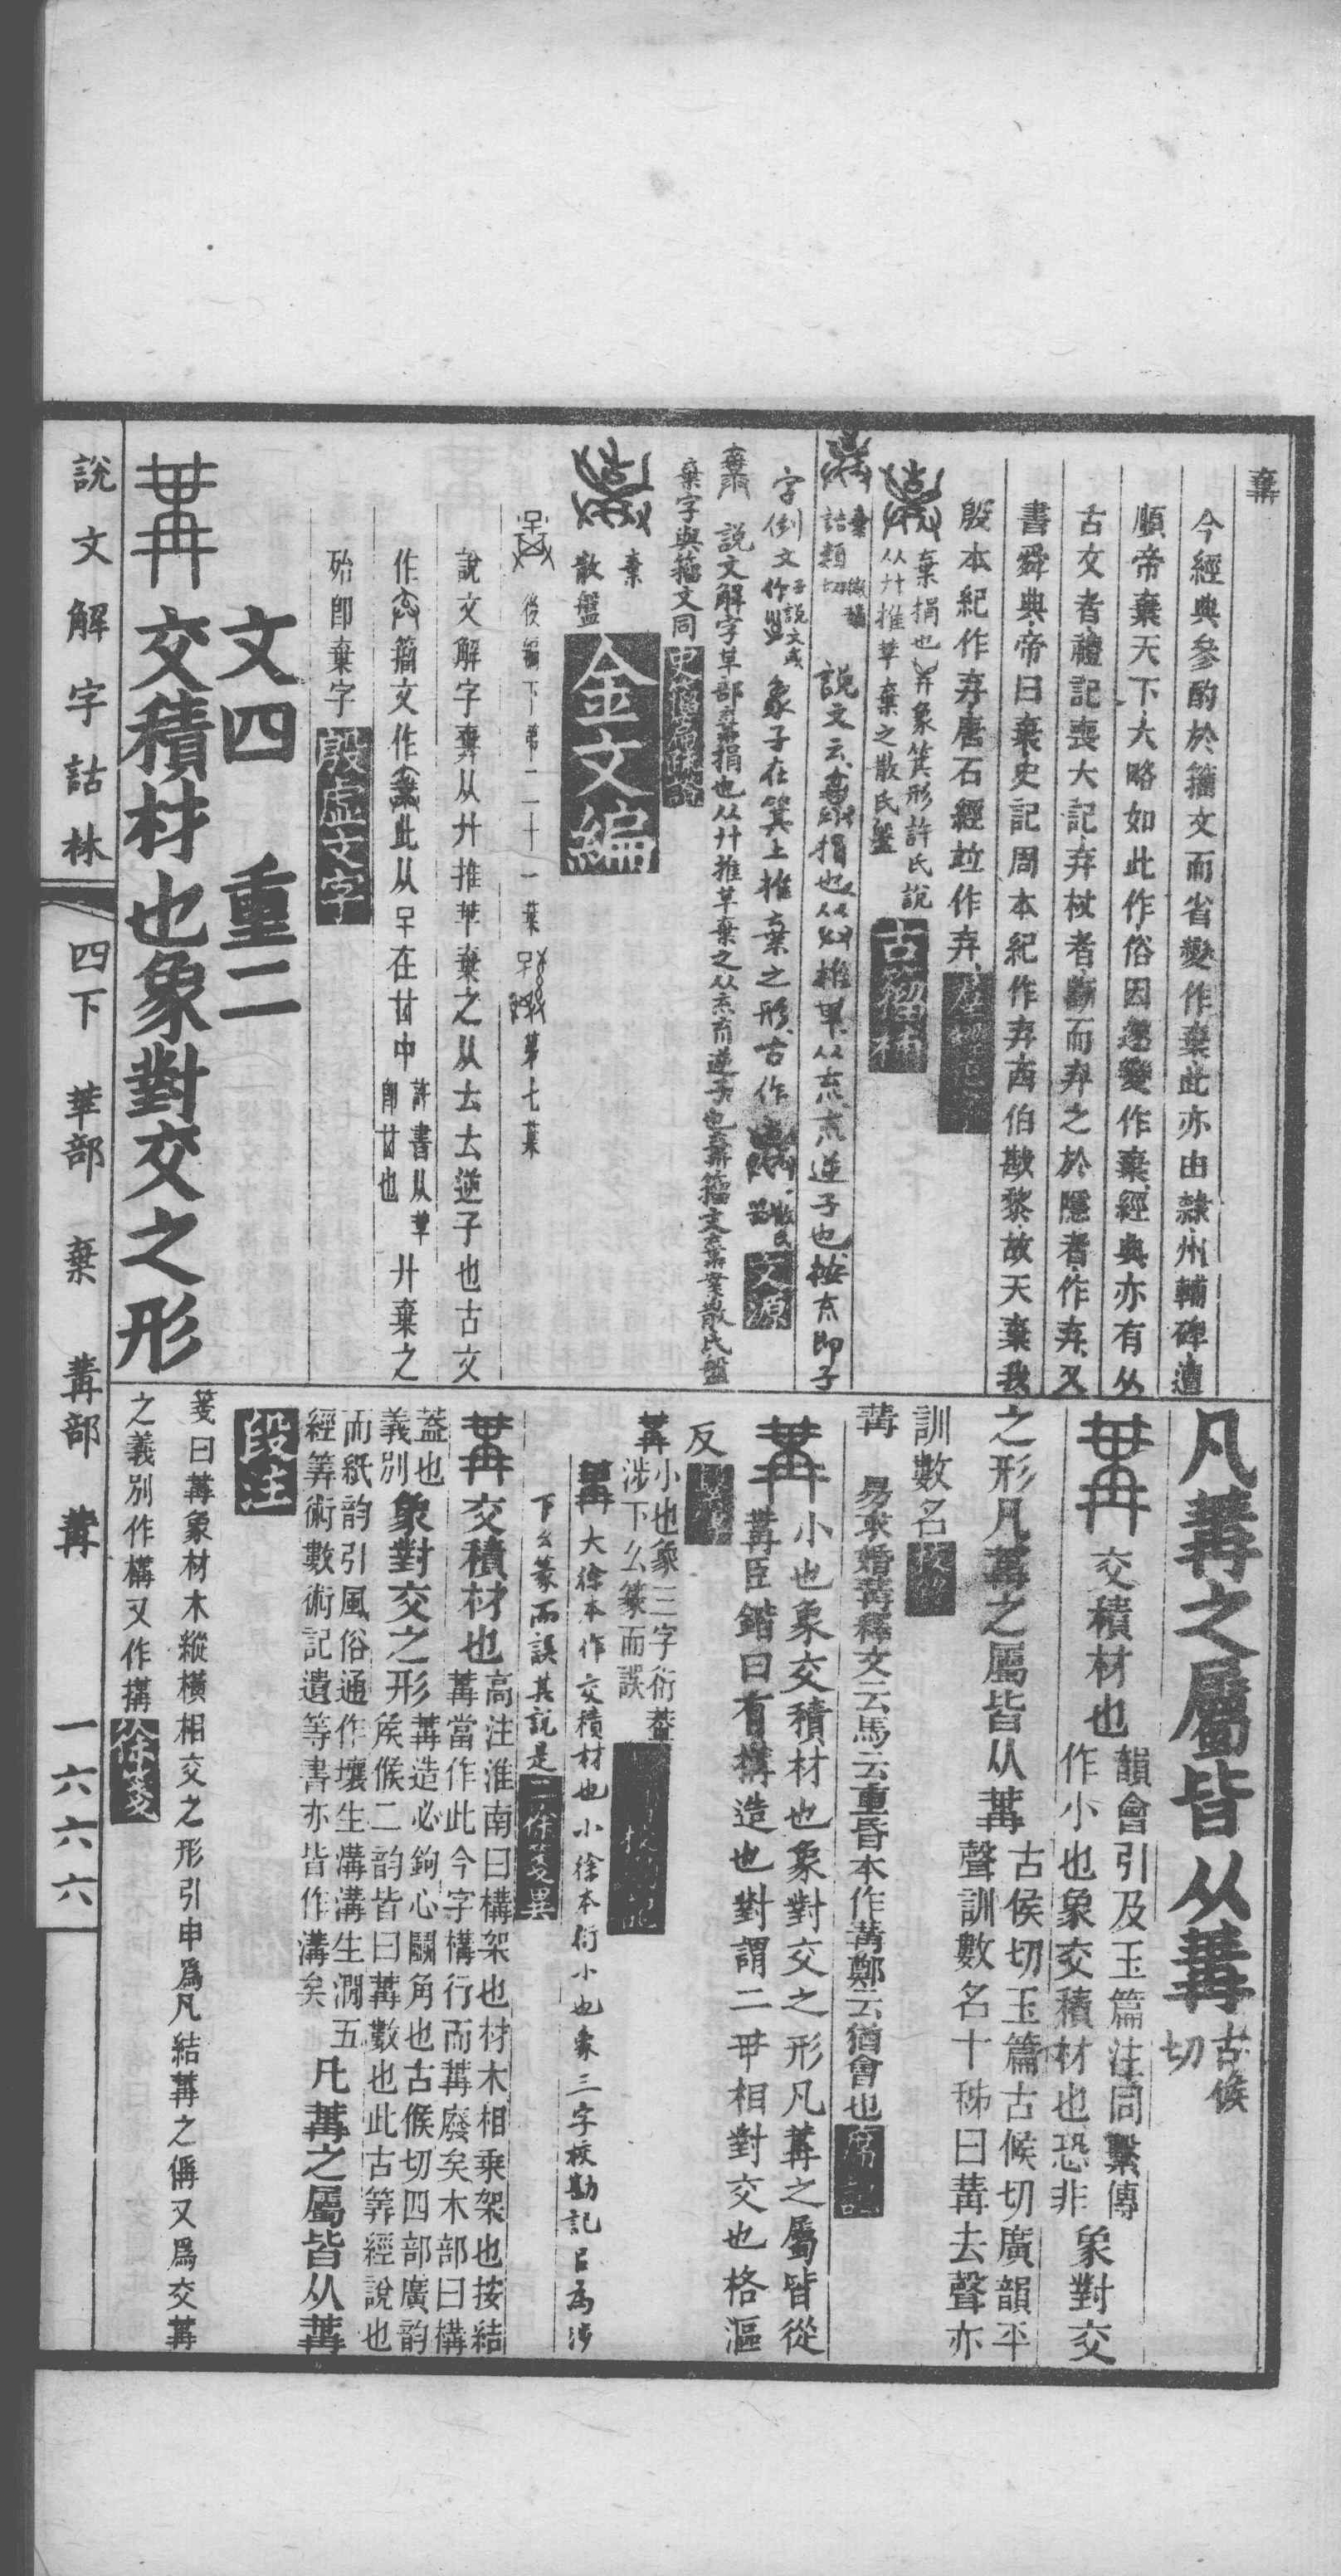 棄
今經典參酌於籒文而省變作棄此亦由隸州輔碑遭
順帝棄天下大略如此作俗因遞變作棄經典亦有从
古文者禮記喪大記弃杖者斷而弃之於隱者作弃又
書舜典帝曰棄史記周本紀作弃西伯戡黎故天棄我
殷本紀作弃唐石經竝作弃
棄捐也象箕形許氏說
从廾推𠦒棄之散氏盤
古籀補
說文云捐也从推𠦒从𠫓𠫓逆子也按𠫓卽子
字倒文作象子在箕上推棄之形古作散氏器 文源
說文解字𠦒部棄捐也从廾推𠦒棄之从𠫓𠫓逆子也籒文棄案散氏盤
棄字與籒文同 史籀篇疏證
棄
散盤
金文編
後編下第二十一葉 第七葉
說文解字棄从廾推𠦒棄之从𠫓𠫓逆子也古文
作籒文作此从在甘中許書从𠦒卽甘也廾棄之
殆卽棄字 殷虛文字
文四 重二
冓 交積材也象對交之形
凡冓之屬皆从冓 古候切
冓 交積材也韻會引及玉篇注同繫傳作小也象交積材也恐非象對交
之形凡冓之屬皆从冓古侯切玉篇古候切廣韻平聲訓數名十秭曰冓去聲亦
訓數名
冓 易求婚冓釋文云馬云重昏本作冓鄭云猶會也
冓 小也象交積材也象對交之形凡冓之屬皆從
冓臣鍇曰有構造也對謂二相對交也格漚
反
冓 小也象三字衍葢涉下幺篆而誤
冓 大徐本作交積材也小徐本衍小也象三字校勘記已爲涉
下幺篆而誤其說是 二徐箋異
冓 交積材也高注淮南曰構架也材木相乘架也按結冓當作此今字構行而冓廢矣木部曰構
葢也義別象對交之形冓造必鉤心鬬角也古候切四部廣韵矦候二韵皆曰冓數也此古筭經說也
而紙韵引風俗通作壤生溝溝生澗五經筭術數術記遺等書亦皆作溝矣凡冓之屬皆从冓
段注
箋曰冓象材木縱橫相交之形引申爲凡結冓之偁又爲交冓
之義別作構又作搆 徐箋
說文解字詁林 四下 𠦒部 棄 冓部 冓 一六六六